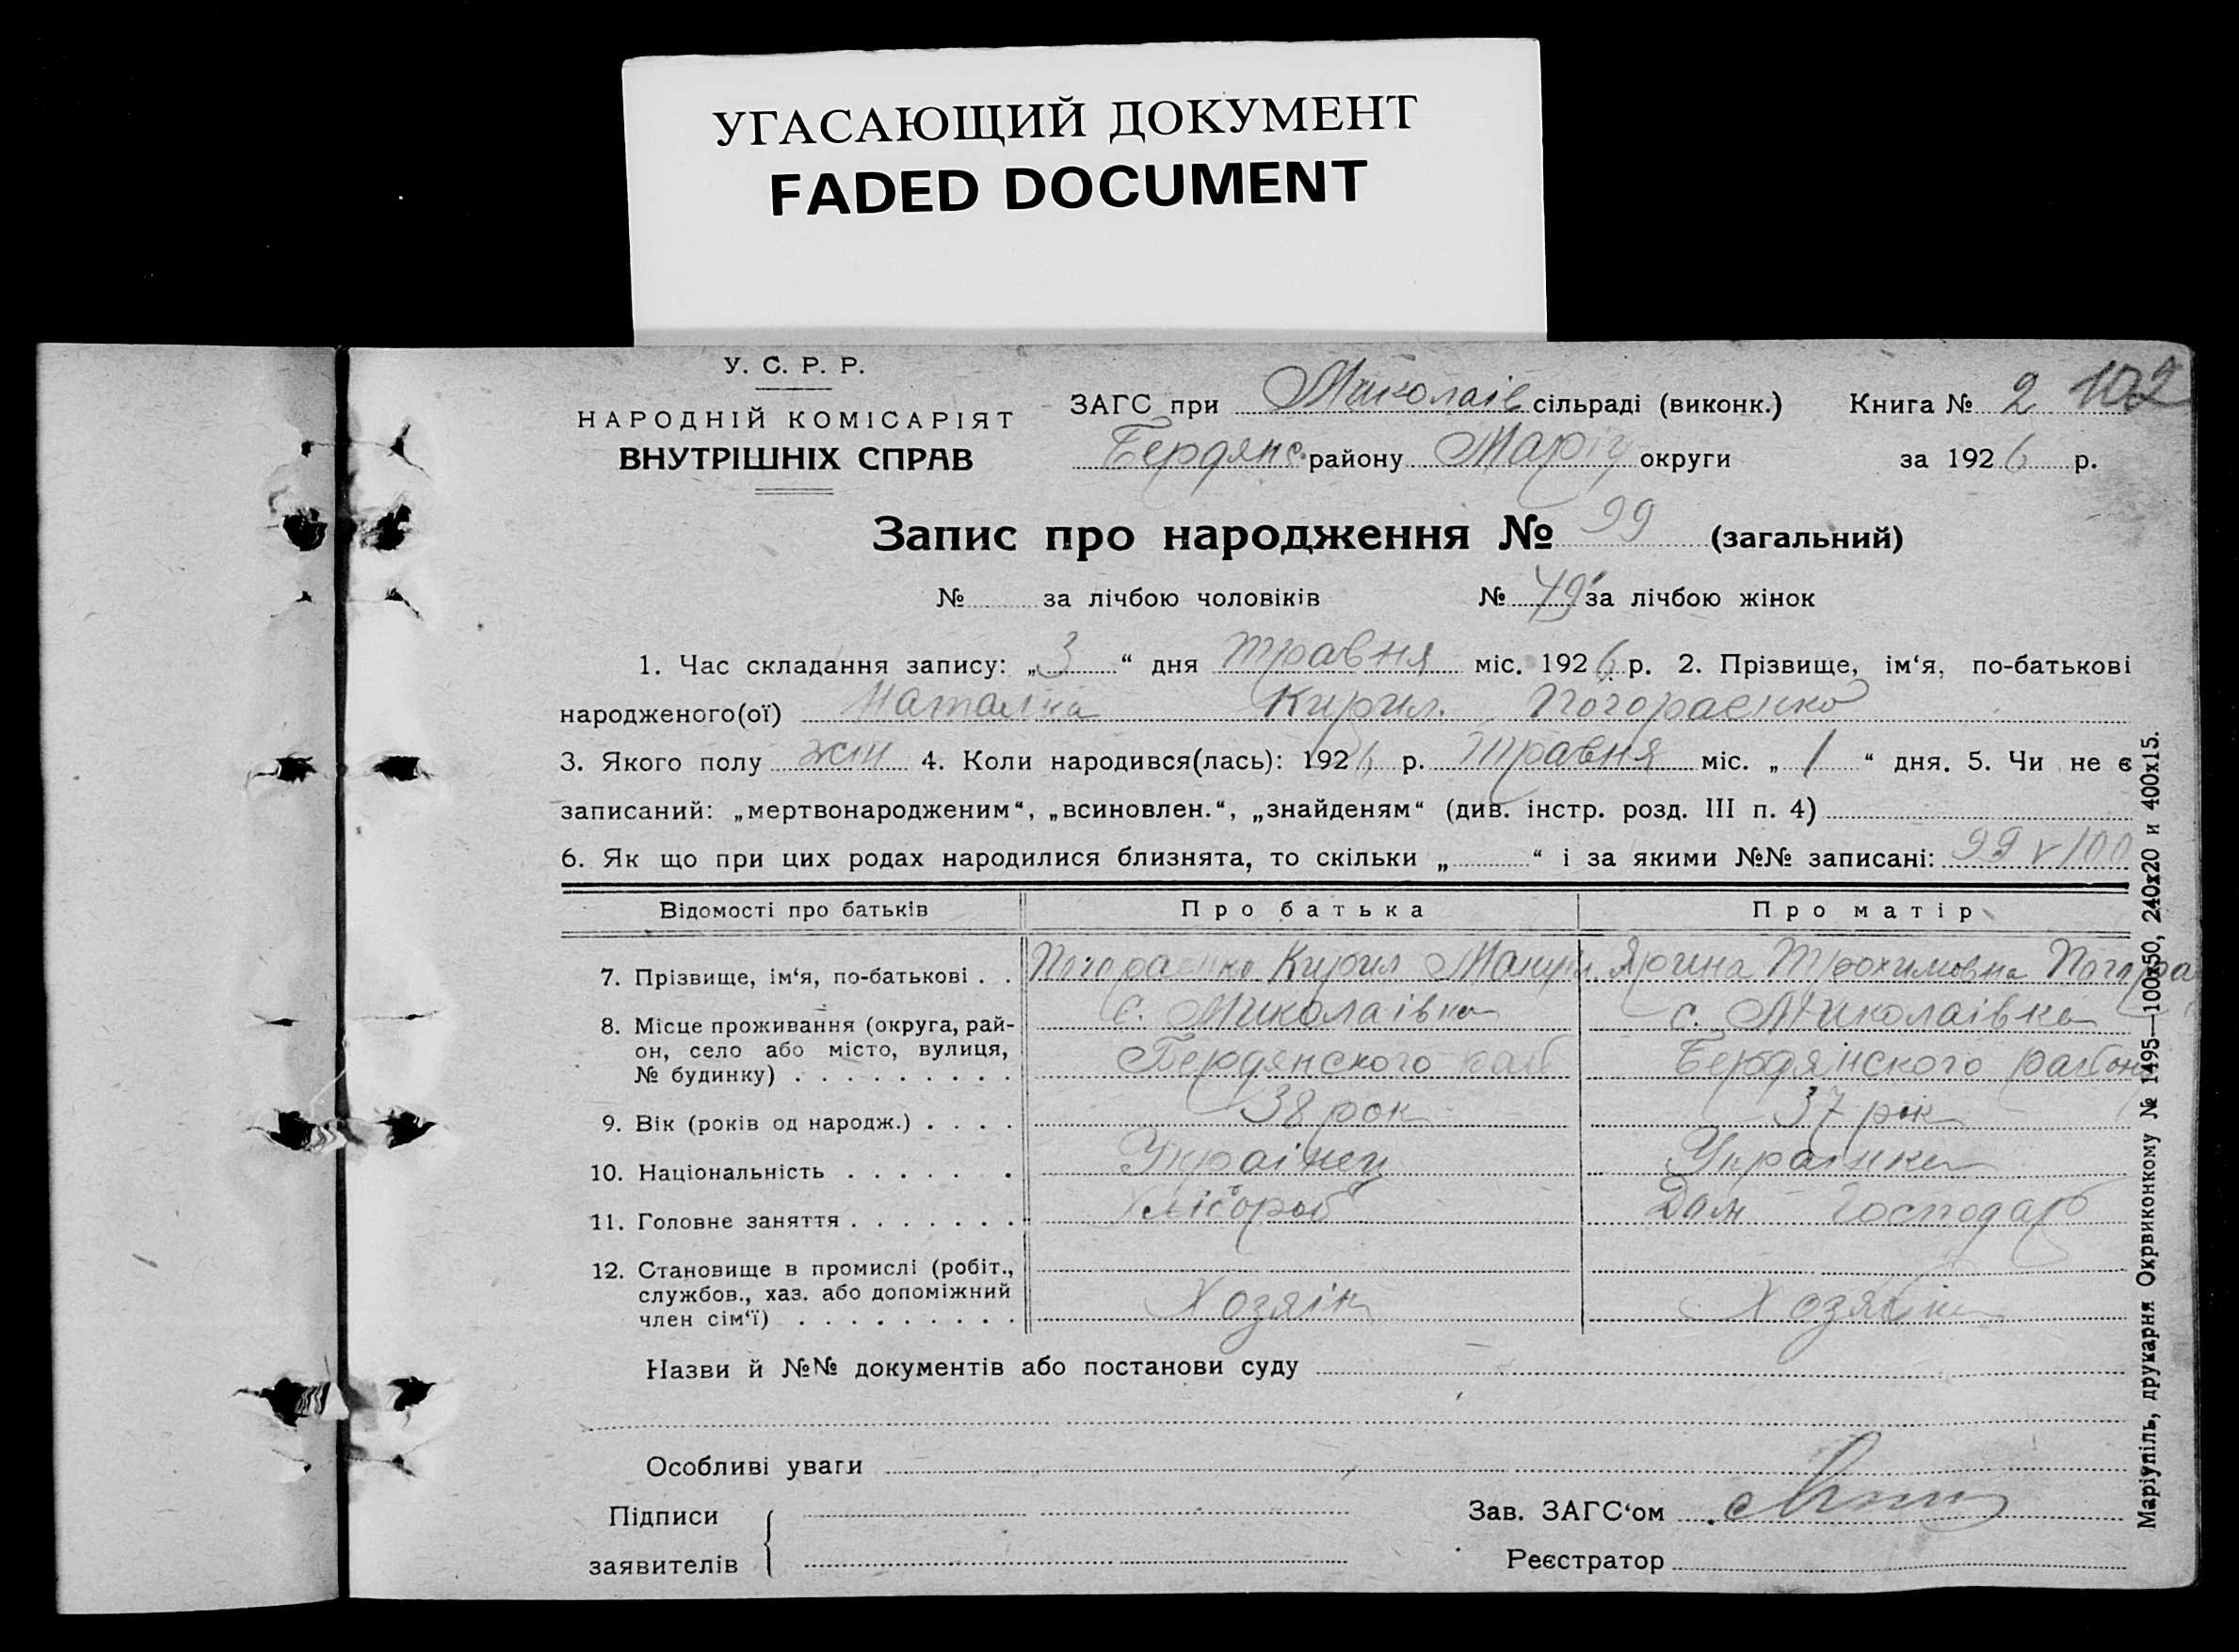 УГАСАЮЩИЙ ДОКУМЕНТ
FADED DOCUMENT
У. С. Р. Р.
НАРОДНІЙ КОМІСАРІЯТ
ВНУТРІШНІХ СПРАВ
ЗАГС при Миколаів сільраді (виконк.) Книга № 2 102
Бердянс. району Маріу округи за 1926 р.
Запис про народження № 99 (загальний)
№ за лічбою чоловіків № 49 за лічбою жінок
1. Час складання запису: „3“ дня травня міс. 1926 р. 2. Прізвище, ім‘я, по-батькові
народженого(ої) Наталка Кирил. Погораєнко
3. Якого полу жін 4. Коли народився(лась): 1926 р. травня міс. „1“ дня. 5. Чи не є
записаний: „мертвонародженим“, „всиновлен.“, „знайденям“ (див. інстр. розд. III п. 4)
6. Як що при цих родах народилися близнята, то скільки „ “ і за якими №№ записані: 99 v 100
Відомості про батьків Про батька Про матір
7. Прізвище, ім‘я, по-батькові . . Погораєнко Кирил Ярина Трохимовна Погора
8. Місце проживання (округа, рай- с. Миколаівка с. Миколаівка
он, село або місто, вулиця,
№ будинку) . . . . . . . . . Бердянского рай Бердянского район
9. Вік (років од народж.) . . . . 38 рок 37 рок
10. Національність . . . . . . Українец Українка
11. Головне заняття . . . . . . . Хлібороб Дом господар
12. Становище в промислі (робіт.,
службов., хаз. або допоміжний
член сім‘ї) . . . . . . . . . Хозяін Хозяйка
Назви й №№ документів або постанови суду
Особливі уваги
Підписи
заявителів
Зав. ЗАГС‘ом
Реєстратор
Маріупіль, друкарня Окрвиконкому № 1495—100х50, 240х20 и 400х15.